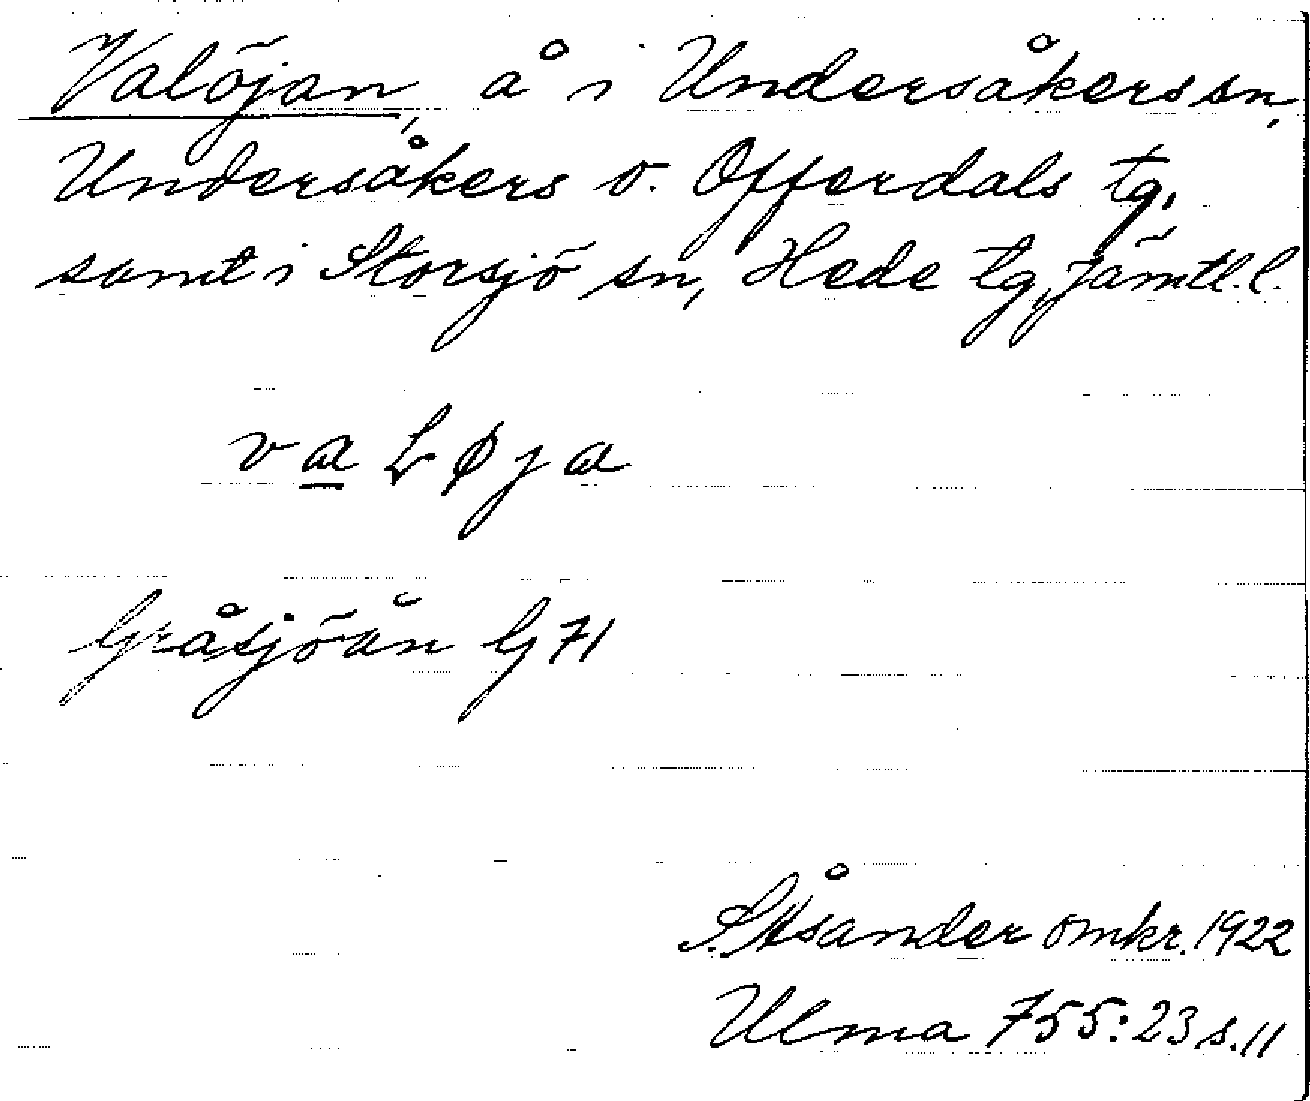 Valöjan, å i Undersåkers sn,
Undersåkers o. Offerdals tg,
samt i Storsjö sn, Hede tg, Jämtl. l.
va Løja
Gråsjöån G 71
Åsander omkr. 1922
Ulma 755:23 s. 11